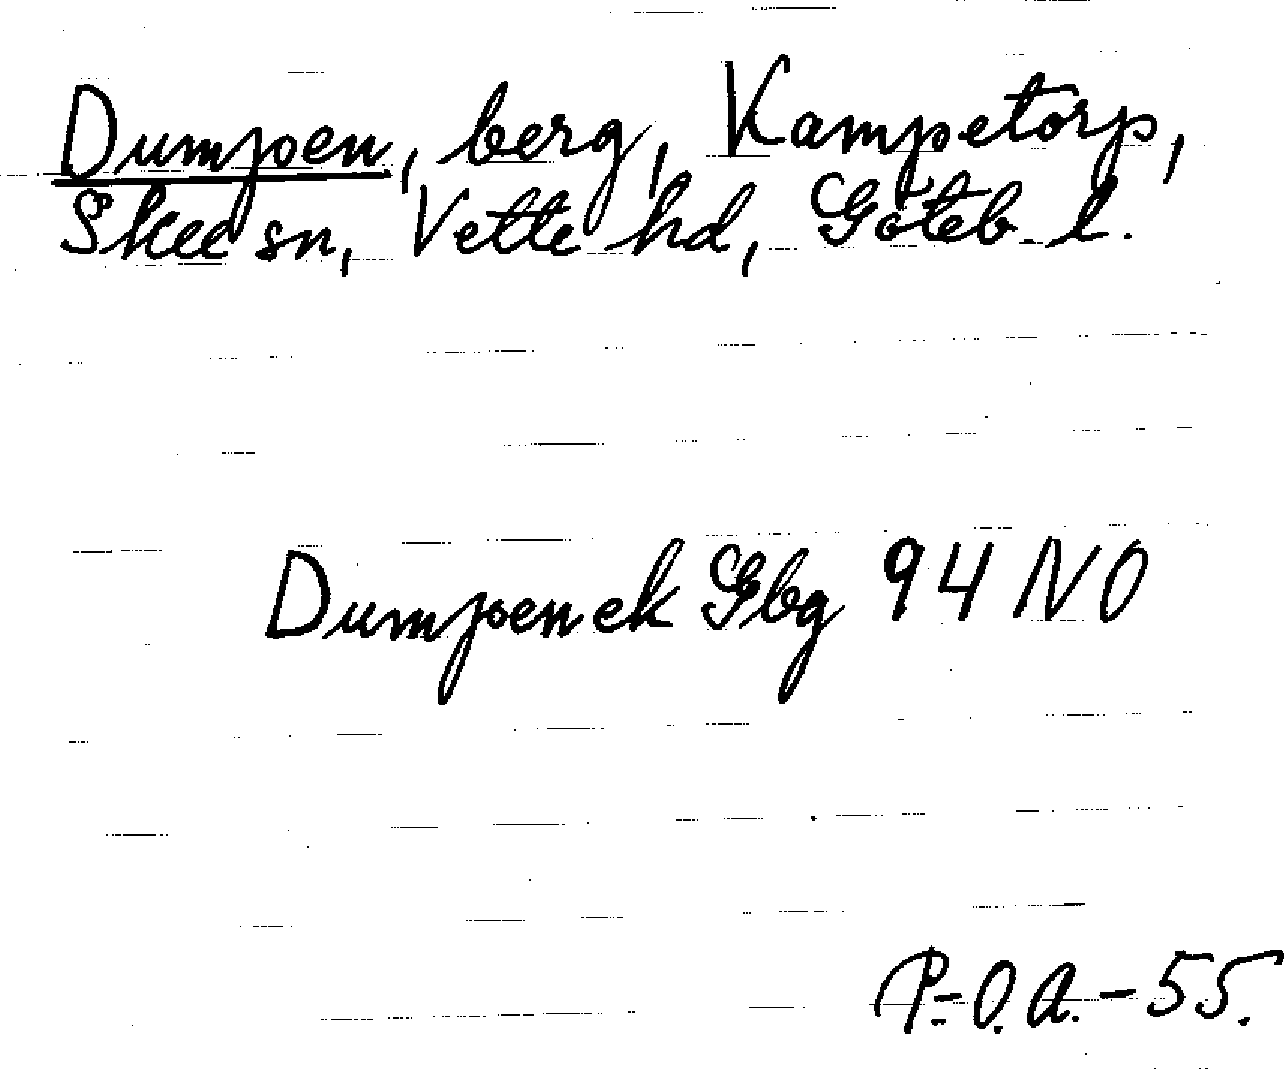 Dumpen, berg, Kampetorp,
Skee sn, Vette hd, Göteb l.
Dumpen ek Gbg 94 NO
P-O.A.-55.